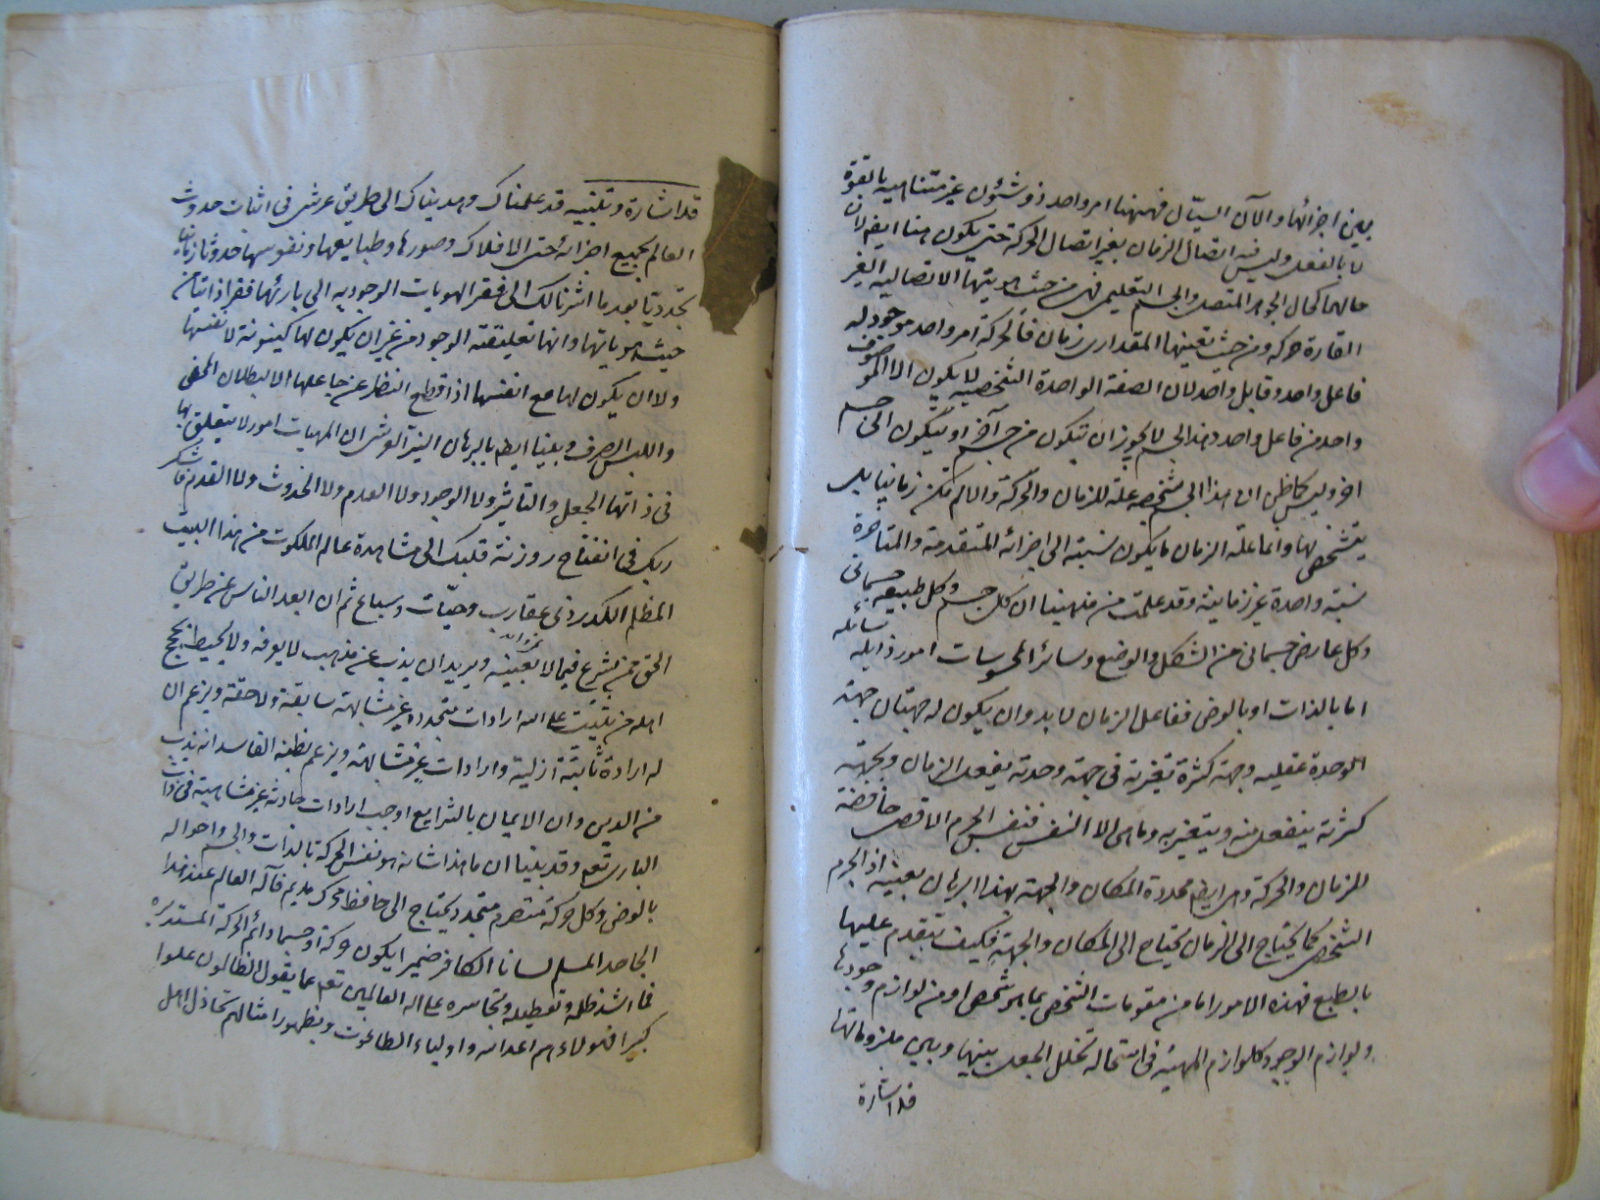 بين اجزائها والآن السيّال فههنا امر واحد ذو شئون غير متناهيه بالقوة
لا بالفعل وليس فيه اتصال الزمان بغير اتصال الحركة حتى يكون هنا ايضه لان
حالهما كحال الجوهر المتصل والجسم التعليمى فهى من حيث هويتها الاتصاليه الغير
القارة حركه ومن حيث تعينها المقدارى زمان فالحركة امر واحد موجود له
فاعل واحد وقابل واحد لان الصفة الواحدة الشخصيه لا يكون الا لموصوف
واحد من فاعل واحد وهذا الجسم لا يجوز ان تيكون من جسم آخر او يتكون الى جسم
اخر وليس كما ظن ان هذا الجسم بتشخصه علة للزمان والحركة والا لم تكن زمانيا بل
يتشخص لها وانما علة الزمان ما يكون نسبته الى اجزائه المتقدمة والمتاخرة
نسبة واحدة غير زمانية وقد علمت من مذهبنا ان كل جسم وكل طبيعه جسمانى
وكل عارض جسمانى من الشكل والوضع وسائر المحسوسات امور زايله سائله
اما بالذات او بالعرض ففاعل الزمان لابد وان يكون له جهتان جهة
الوحدة عقليه وجهة كثرة تغيرية فى جهة وحدته يفعل الزمان وبجهة
كثرية ينفعل منه ويتغير به وما هى الا النفس فنفس الجرم الاقصى حافظة
للزمان والحركة وهى ايضه محددة المكان والجهة بهذا البرهان بعينه اذ الجرم
الشخصى كما يحتاج الى الزمان يحتاج الى المكان والجهة فكيف تتقدم عليها
بالطبع فهذه الامور اما من مقومات الشخص بما هو شخص او من لوازم وجودها
ولوازم الوجود كلوازم المهية فى استحالة تخلل الجعل بينها وبين ملزوماتها
قد اشارة
قد اشارة وتنبيه قد علمناك وهديناك الى طريق عرشى فى اثبات حدوث
العالم بجميع اجزائه حتى الافلاك وصورها وطبايعها ونفوسها حدوثا زمانيا
تجدديا بعد ما اشرنا لك الى فقر الهويات الوجوديه الى بارئها فقرا ذاتيا من
حيث هوياتها وانها تعليقية الوجود من غير ان يكون لها كينونة لا نفسها
ولا ان يكون لها مع انفسها اذا قطع النظر عن جاعلها الا البطلان المحض
والليس الصرف وبينا ايضه بالبرهان النير العرشى ان المهيات امور لا يتعلق بها
فى ذاتها الجعل والتاثير ولا الوجود ولا العدم ولا الحدوث ولا القدم فاشكر
ربك فى انفتاح روزنة قلبك الى مشاهدة عالم الملكوت من هذا البيت
المظلم الكدر ذى عقارب وحيّات وسباع ثم ان ابعد الناس عن طريق
الحق من يشرع فيما لا يعينه ويريد ان يذب عن مذهب لا يعرفه ولا يحيط بحجج
اهله من يثبت على الله ارادات متجدده غير متشابهة سابقة ولاحقة ويزعم ان
له ارادة ثابتة ازلية وارادات غير متشابهة ويزعم بظنه الفاسد انه يذب
من الدين وان الايمان بالشرايع اوجب ارادات حادثه غير متناهية فى ذات
البارى تعم وقد بينا ان ما هذا شانه هو نفس الحركة بالذات والجسم واحواله
بالعرض وكل حركة متصرم متجدد يحتاج الى حافظ محرك مديم فآله العالم عند هذا
الجاحد المسلم لسانا الكافر ضميرا يكون حركة او جسما دائم الحركة المستديره
فما اشد ظلمه وتعطيله وتجاسره على اله العالمين تعم عما يقول الظالمون علوا
كبيرا فهولاء هم اعداء الله واولياء الطاغوت وبظهور امثالهم تخاذل اهل